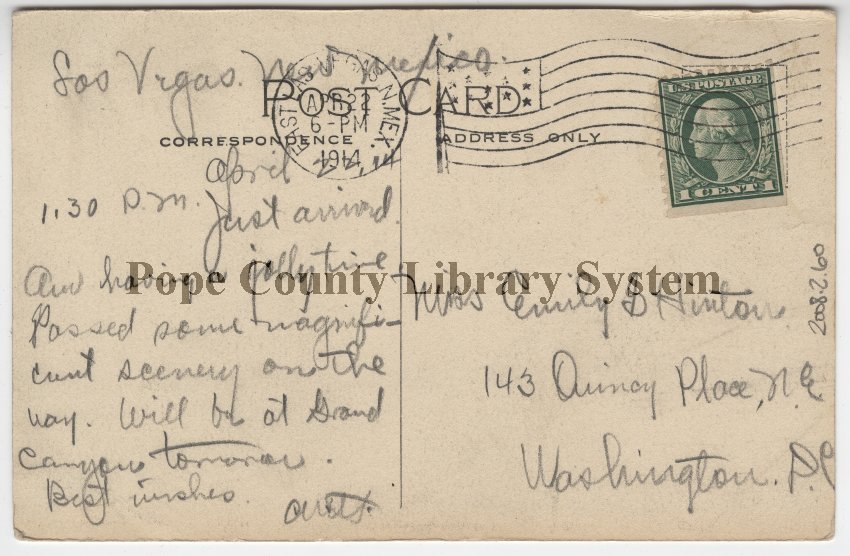 Las Vegas. New Mexico.
POST CARD
EAST LAS VEGAS N. MEX.
APR 22
6-PM
1914
U.S. POSTAGE
1 CENT 1
CORRESPONDENCE
ADDRESS ONLY
April 22, 14
1:30 P.M.
Just arrived.
Am having a jolly time
Passed some magnifi-
cent scenery on the
way. Will be at Grand
Canyon tomorrow.
Best wishes.
Pope County Library System
Miss Emily D Hinton
143 Quincy Place, N.E
Washington. D.C
2008.2.60